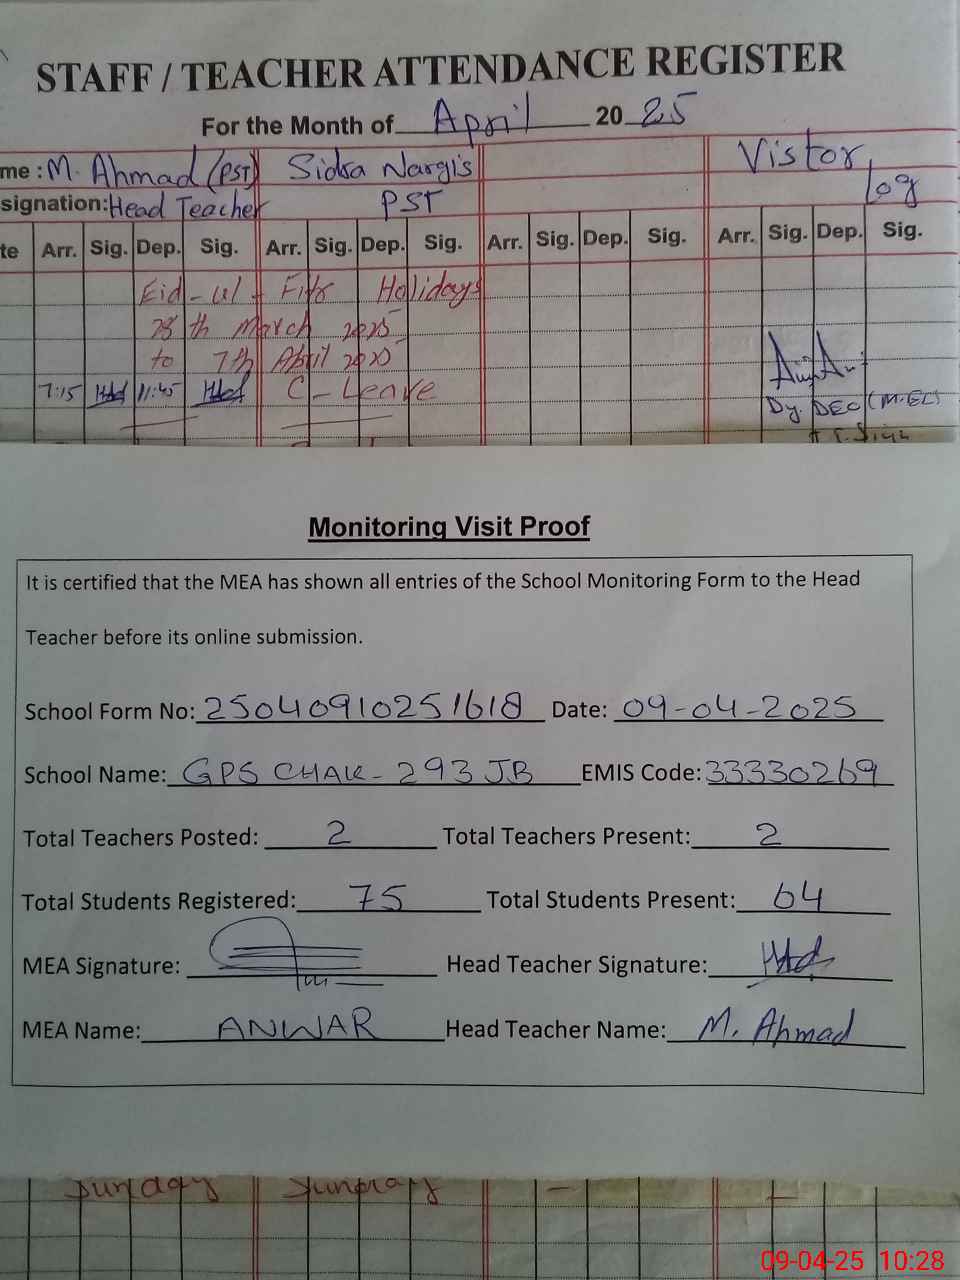 STAFF / TEACHER ATTENDANCE REGISTER
For the Month of April 2025
me : M. Ahmad (PST) Sidra Nargis Vistor log
signation: Head Teacher PST
te Arr. Sig. Dep. Sig. Arr. Sig. Dep. Sig. Arr. Sig. Dep. Sig. Arr. Sig. Dep. Sig.
Eid-ul-Fitr Holidays
28th March 2025
to 7th April 2025
7:15 11:45 C-Leave
Dy. DEO (M.EE)
Monitoring Visit Proof
It is certified that the MEA has shown all entries of the School Monitoring Form to the Head
Teacher before its online submission.
School Form No: 25040910251618 Date: 09-04-2025
School Name: GPS CHAK-293 JB EMIS Code: 33330269
Total Teachers Posted: 2 Total Teachers Present: 2
Total Students Registered: 75 Total Students Present: 64
MEA Signature: Head Teacher Signature:
MEA Name: ANWAR Head Teacher Name: M. Ahmad
Sunday Sunday
09-04-25 10:28